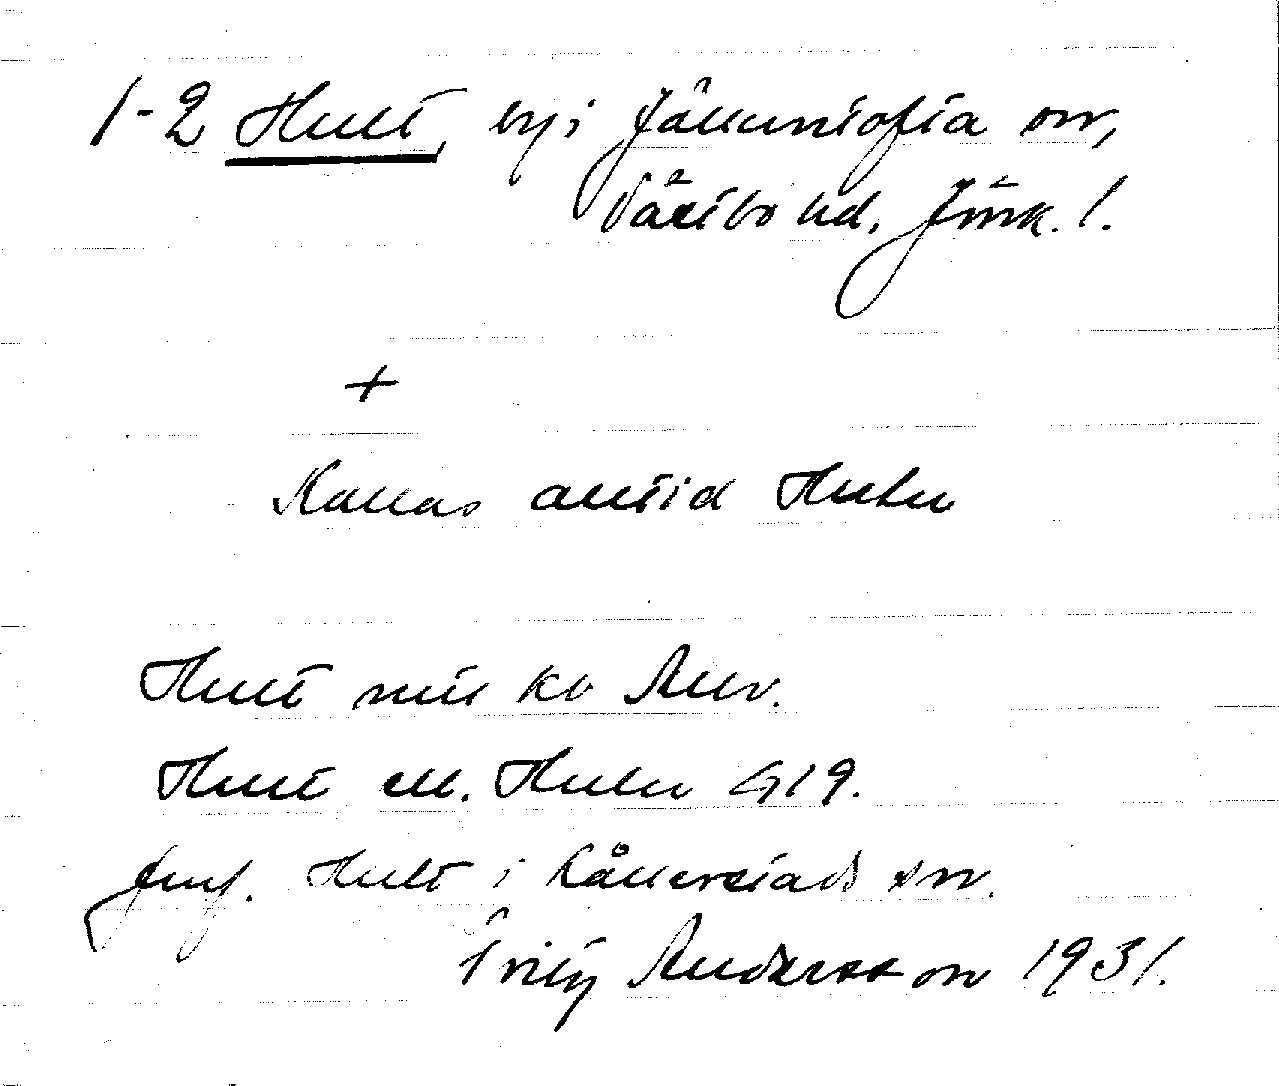 1-2 Hult, by i Jälluntofta sn,
Västbo hd, Jönk. l.
+
Kallas alltid Hulu
Hult
Hult ell. Hulu G19.
Jmf. Hult i Kållerstads sn.
Fritz Andersson 1931.